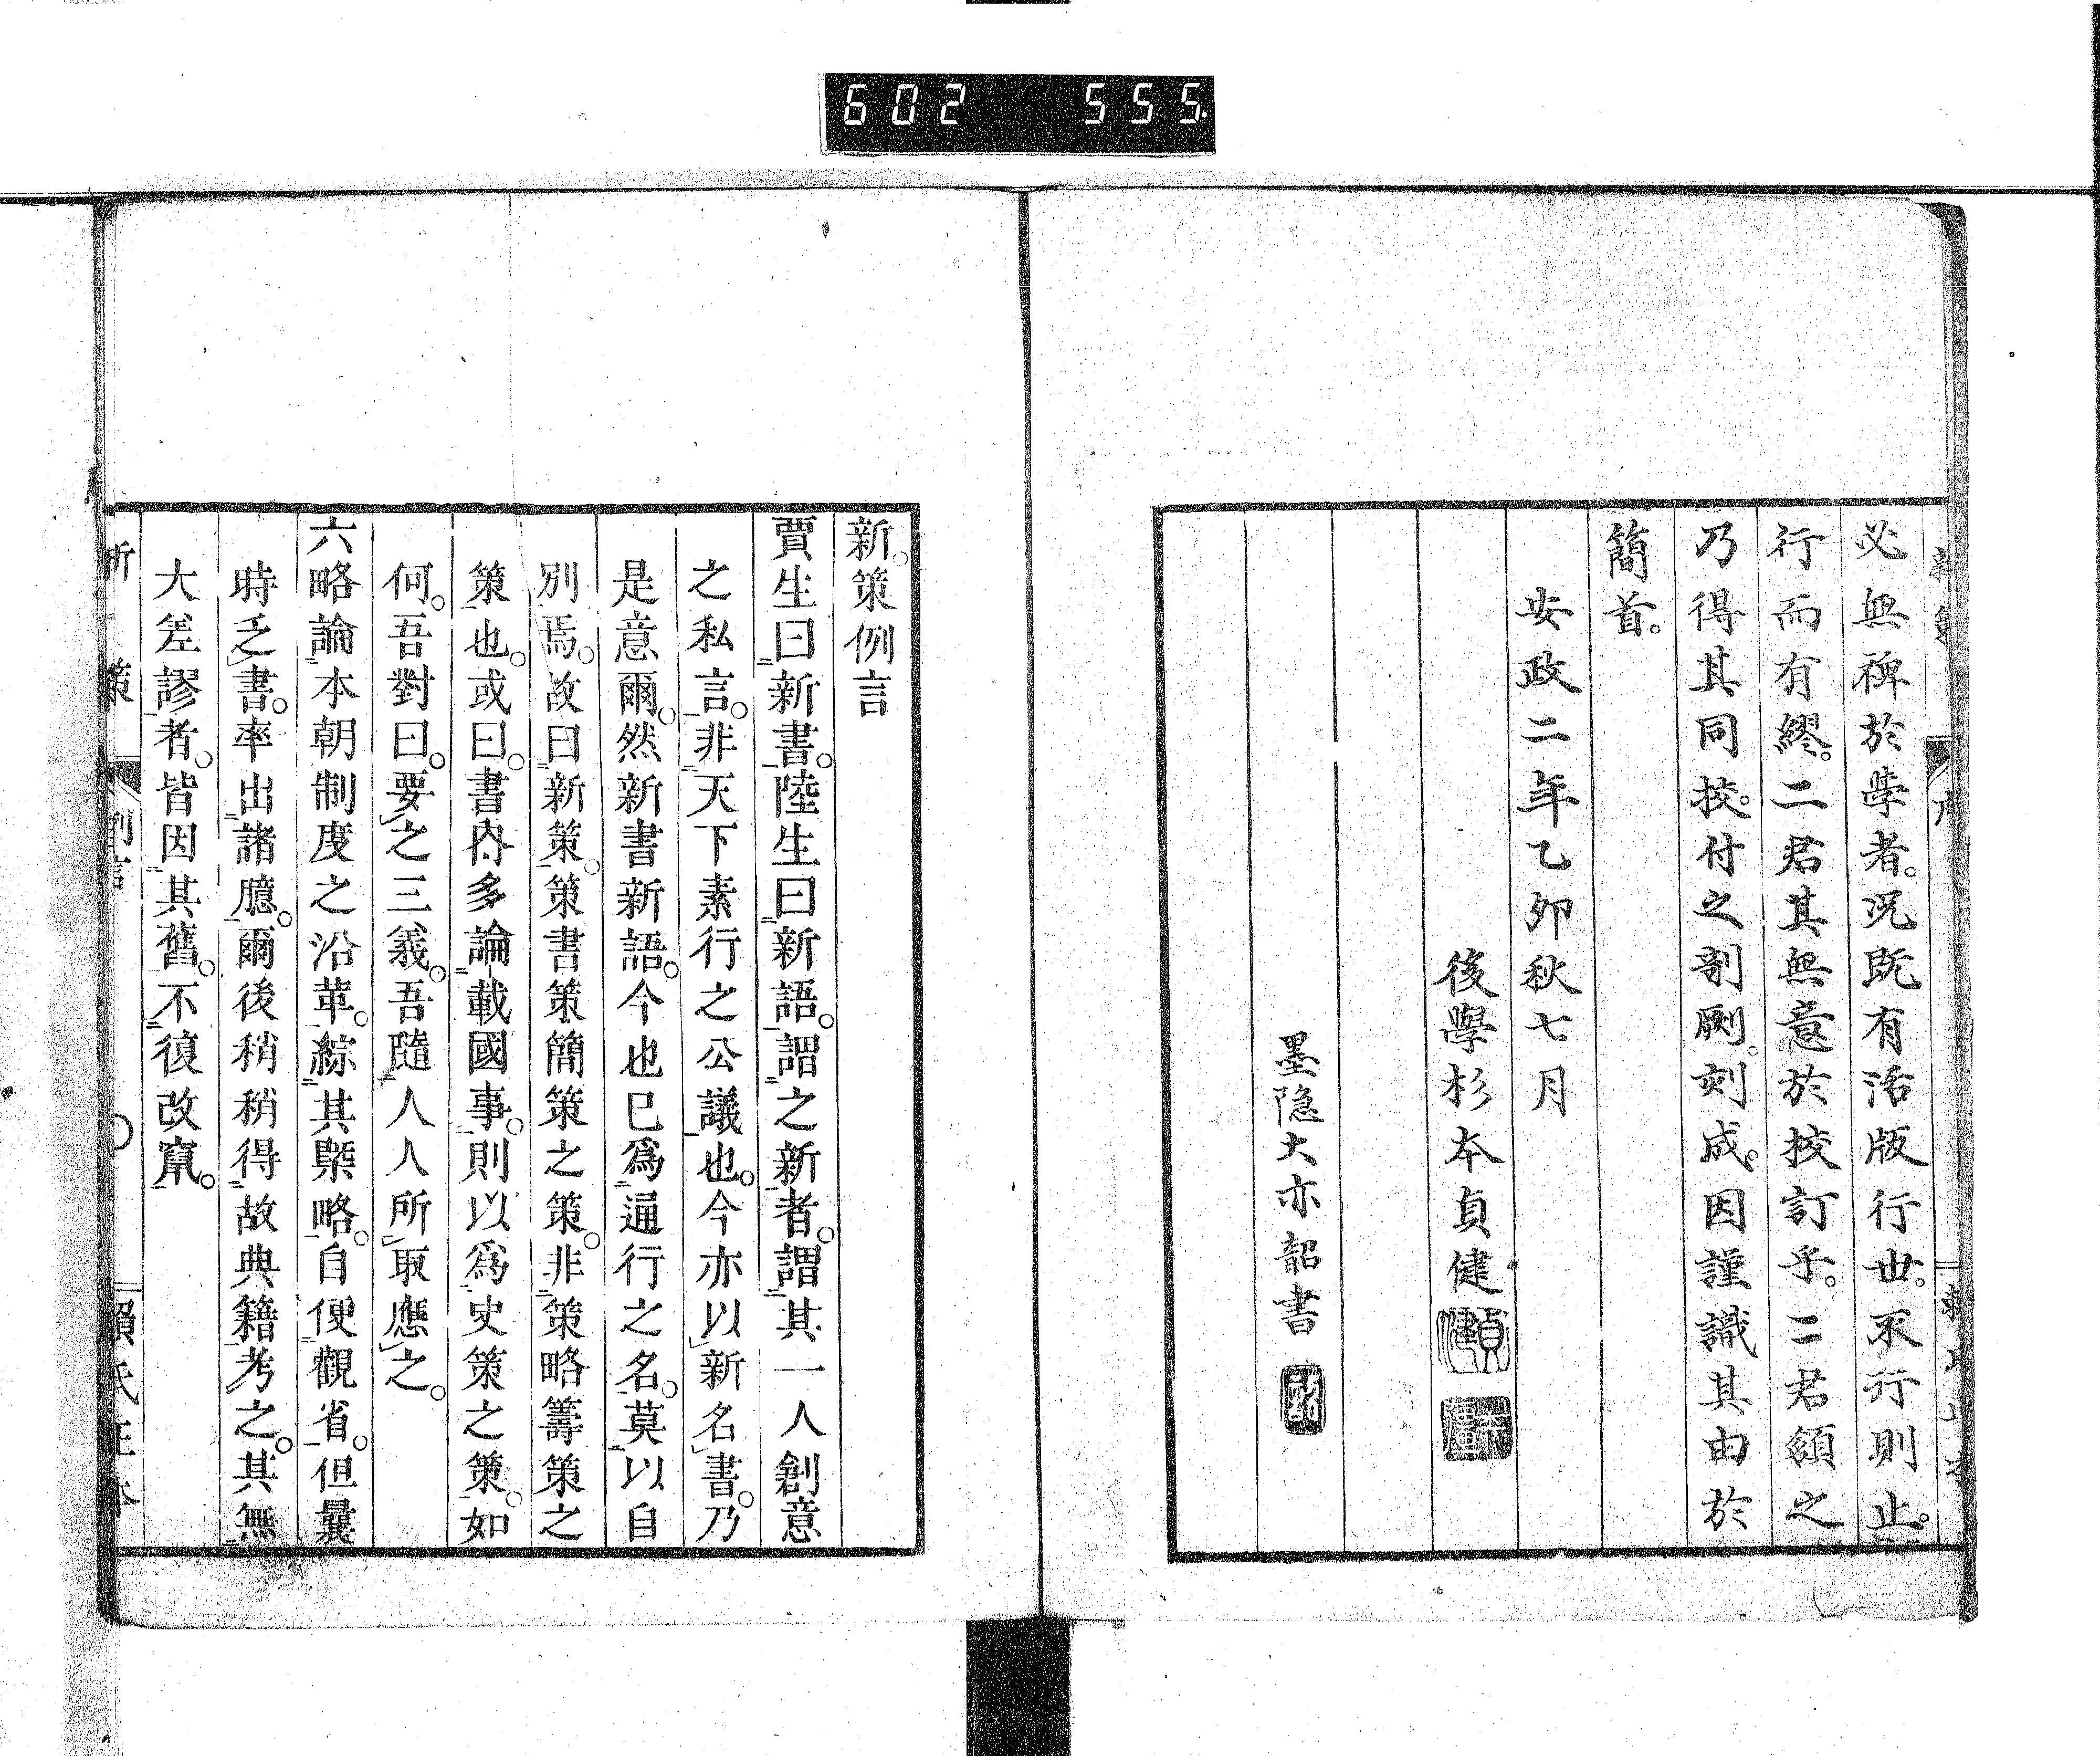 602 555.
必無裨於學者。況既有活版行世。不行則止。
行而有繆。二君其無意於挍訂乎。二君頷之
乃得其同挍。付之剞劂。刻成。因謹識其由於
簡首。
安政二年乙卯秋七月
後學杉本貞健
墨隐大亦韶書
新策例言
賈生曰新書。陸生曰新語。謂之新者。謂其一人創意
之私言。非天下素行之公議也。今亦以新名書。乃
是意爾。然新書新語。今也已爲通行之名。莫以自
別焉。故曰新策。策書策簡策之策。非策略籌策之
策也。或曰。書內多論載國事。則以爲史策之策。如
何。吾對曰。要之三義。吾隨人人所取應之。
六略論本朝制度之沿革。綜其槩略。自便觀省。但曩
時乏書。率出諸臆。爾後稍稍得故典籍考之。其無
大差謬者。皆因其舊。不復改竄。
新策
例言